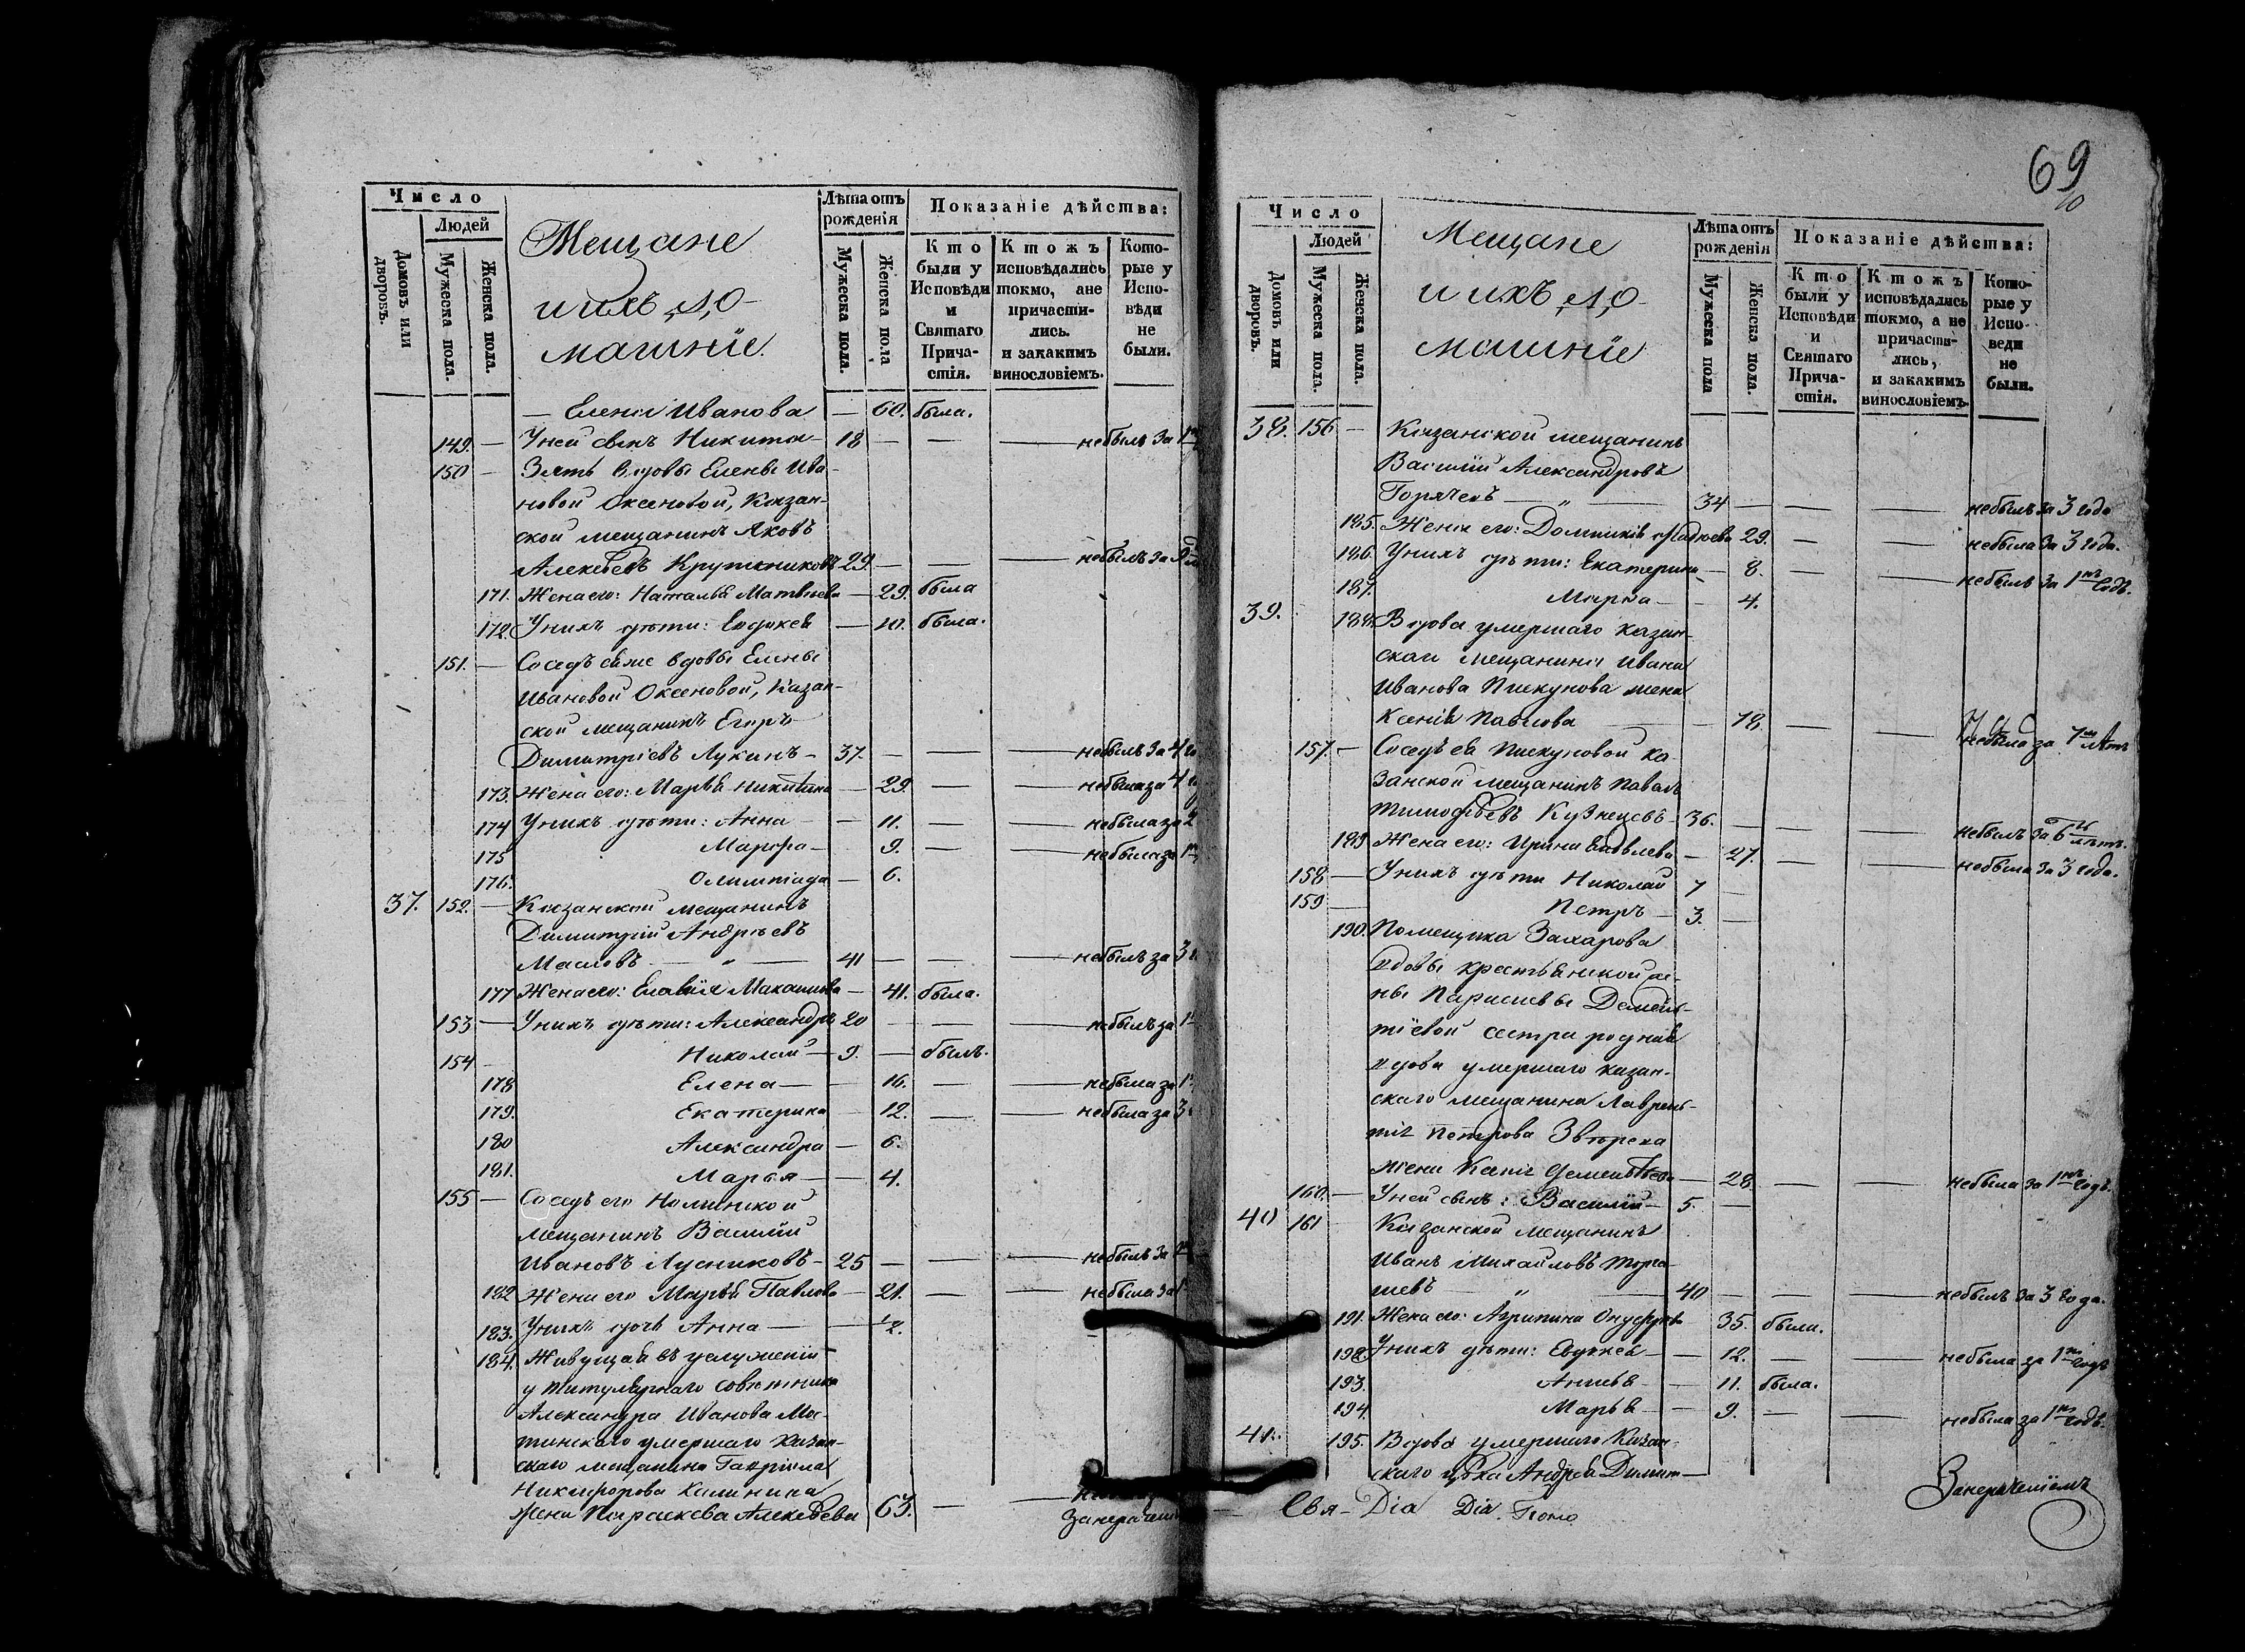 Число
Людей
Домовъ или дворовъ.
Мужеска пола.
Женска пола.
Мещане
и ихъ до-
машніе.
Лѣта отъ рожденія
Мужеска пола.
Женска пола
Показаніе дѣйства:
Кто были у Исповѣди и Святаго Прича- стія.
Ктожъ исповѣдались токмо, ане причасти- лись. и закакимъ винословіемъ.
Кото- рые у Испо- вѣди не были.
— Елена Иванова — 60. была.
149. — У ней сынъ Никита — 18 — — — небылъ за 1
150 — Зять вдовы Елены Ива-
новой Оксеновой, Казан-
ской мещанинъ Яковъ
Алексѣевъ 29. — — — небылъ за
171. Жена его: Наталья Матвѣева — 29. была
172. У нихъ дѣти: Евдокея — 10. была.
151. — Соседъ вдовы Елены
Ивановой Оксеновой, Казан-
ской мещанинъ Егоръ
Димитріевъ Лукинъ — 37. — — — небылъ за 4
173. Жена его: Марья Никитина — 29. — — небыла за 4
174 У нихъ дѣти: Анна — — 11. — — небыла за 2
175 Марфа — 9. — — небыла за 1
176. Олимпіада — 6.
37. 152. — Казанской мещанинъ
Димитрій Андрѣевъ
Масловъ — " — 41 — — — небылъ за 3
177 Жена его: — 41. была.
153 — У нихъ дѣти: Александръ 20 — — — небылъ за 1
154 — Николай — 9. — былъ.
178 Елена — — 16. — — небыла за 1
179. Екатерина — 12. — — небыла за 3
180 Александра — 6.
181. Марья — — 4.
155 — Соседъ его
мещанинъ Василій
Ивановъ — 25 — — — небылъ за
182 Жена его Марья Павлова — 21. — — небыла за
183. У нихъ дочь Анна — — 2.
184. Живущая въ услуженіи
у титулярнаго советника
Александра Иванова Мо-
тинскаго умершаго казан-
скаго мещанина Гавріила
Никифорова Калинина
жена Параскева Алексѣева 63. — —
69
Число
Людей
Домовъ или дворовъ.
Мужеска пола.
Женска пола.
Мещане
и ихъ до-
машніе
Лѣта отъ рожденія
Мужеска пола
Женска пола.
Показаніе дѣйства:
Кто были у Исповѣди и Святаго Прича- стія.
Ктожъ исповѣдались токмо, а не причасти- лись, и закакимъ винословіемъ.
Кото- рые у Испо- веди не были.
38. 156 — Казанской мещанинъ
Василій Александровъ
Горячевъ — " — 34 — — — небылъ за 3 года
185. Жена его: 29. — — небыла за 3 года.
186. У нихъ дѣти: Екатерина — 8. — — небыла за 1 годъ.
187. Марѳа — — 4.
39. 188. Вдова умершаго казан-
скаго мещанина Ивана
Иванова Пискунова жена
Ксенія Павлова — — 78 — небыла за 7 лѣтъ
157. — Соседъ ея Пискуновой ка-
занской мещанинъ Павелъ
Тимофѣевъ Кузнецовъ — 36. — — — небылъ за 6 лѣтъ.
189 Жена его: Ирина Яковлева — 27. — — небыла за 3 года.
158 — У нихъ дѣти Николай 7 —
159 — Петръ — 3. —
190. Помещика Захарова
вдовы крестьянской же-
ны Парасковьи Демень-
тіевой сестра родная
вдова умершаго казан-
скаго мещанина Лаврень-
тія Петрова Звѣрева
жена Дементьева — 28. — — небыла за 1 годъ.
160. — У ней сынъ: Василій — 5. —
40 161 — Казанской мещанинъ
Иванъ Михайловъ Торга-
шевъ " — 40 — — — небылъ за 3 года.
191. Жена его: Агрипина 35. была.
192 У нихъ дѣти: Евдокея — — 12. — — небыла за 1 годъ
193. — — 11. была.
194. Марья — — 9. — — небыла за 1 годъ.
41. 195. Вдова умершаго Казан-
скаго Андрея Димит—